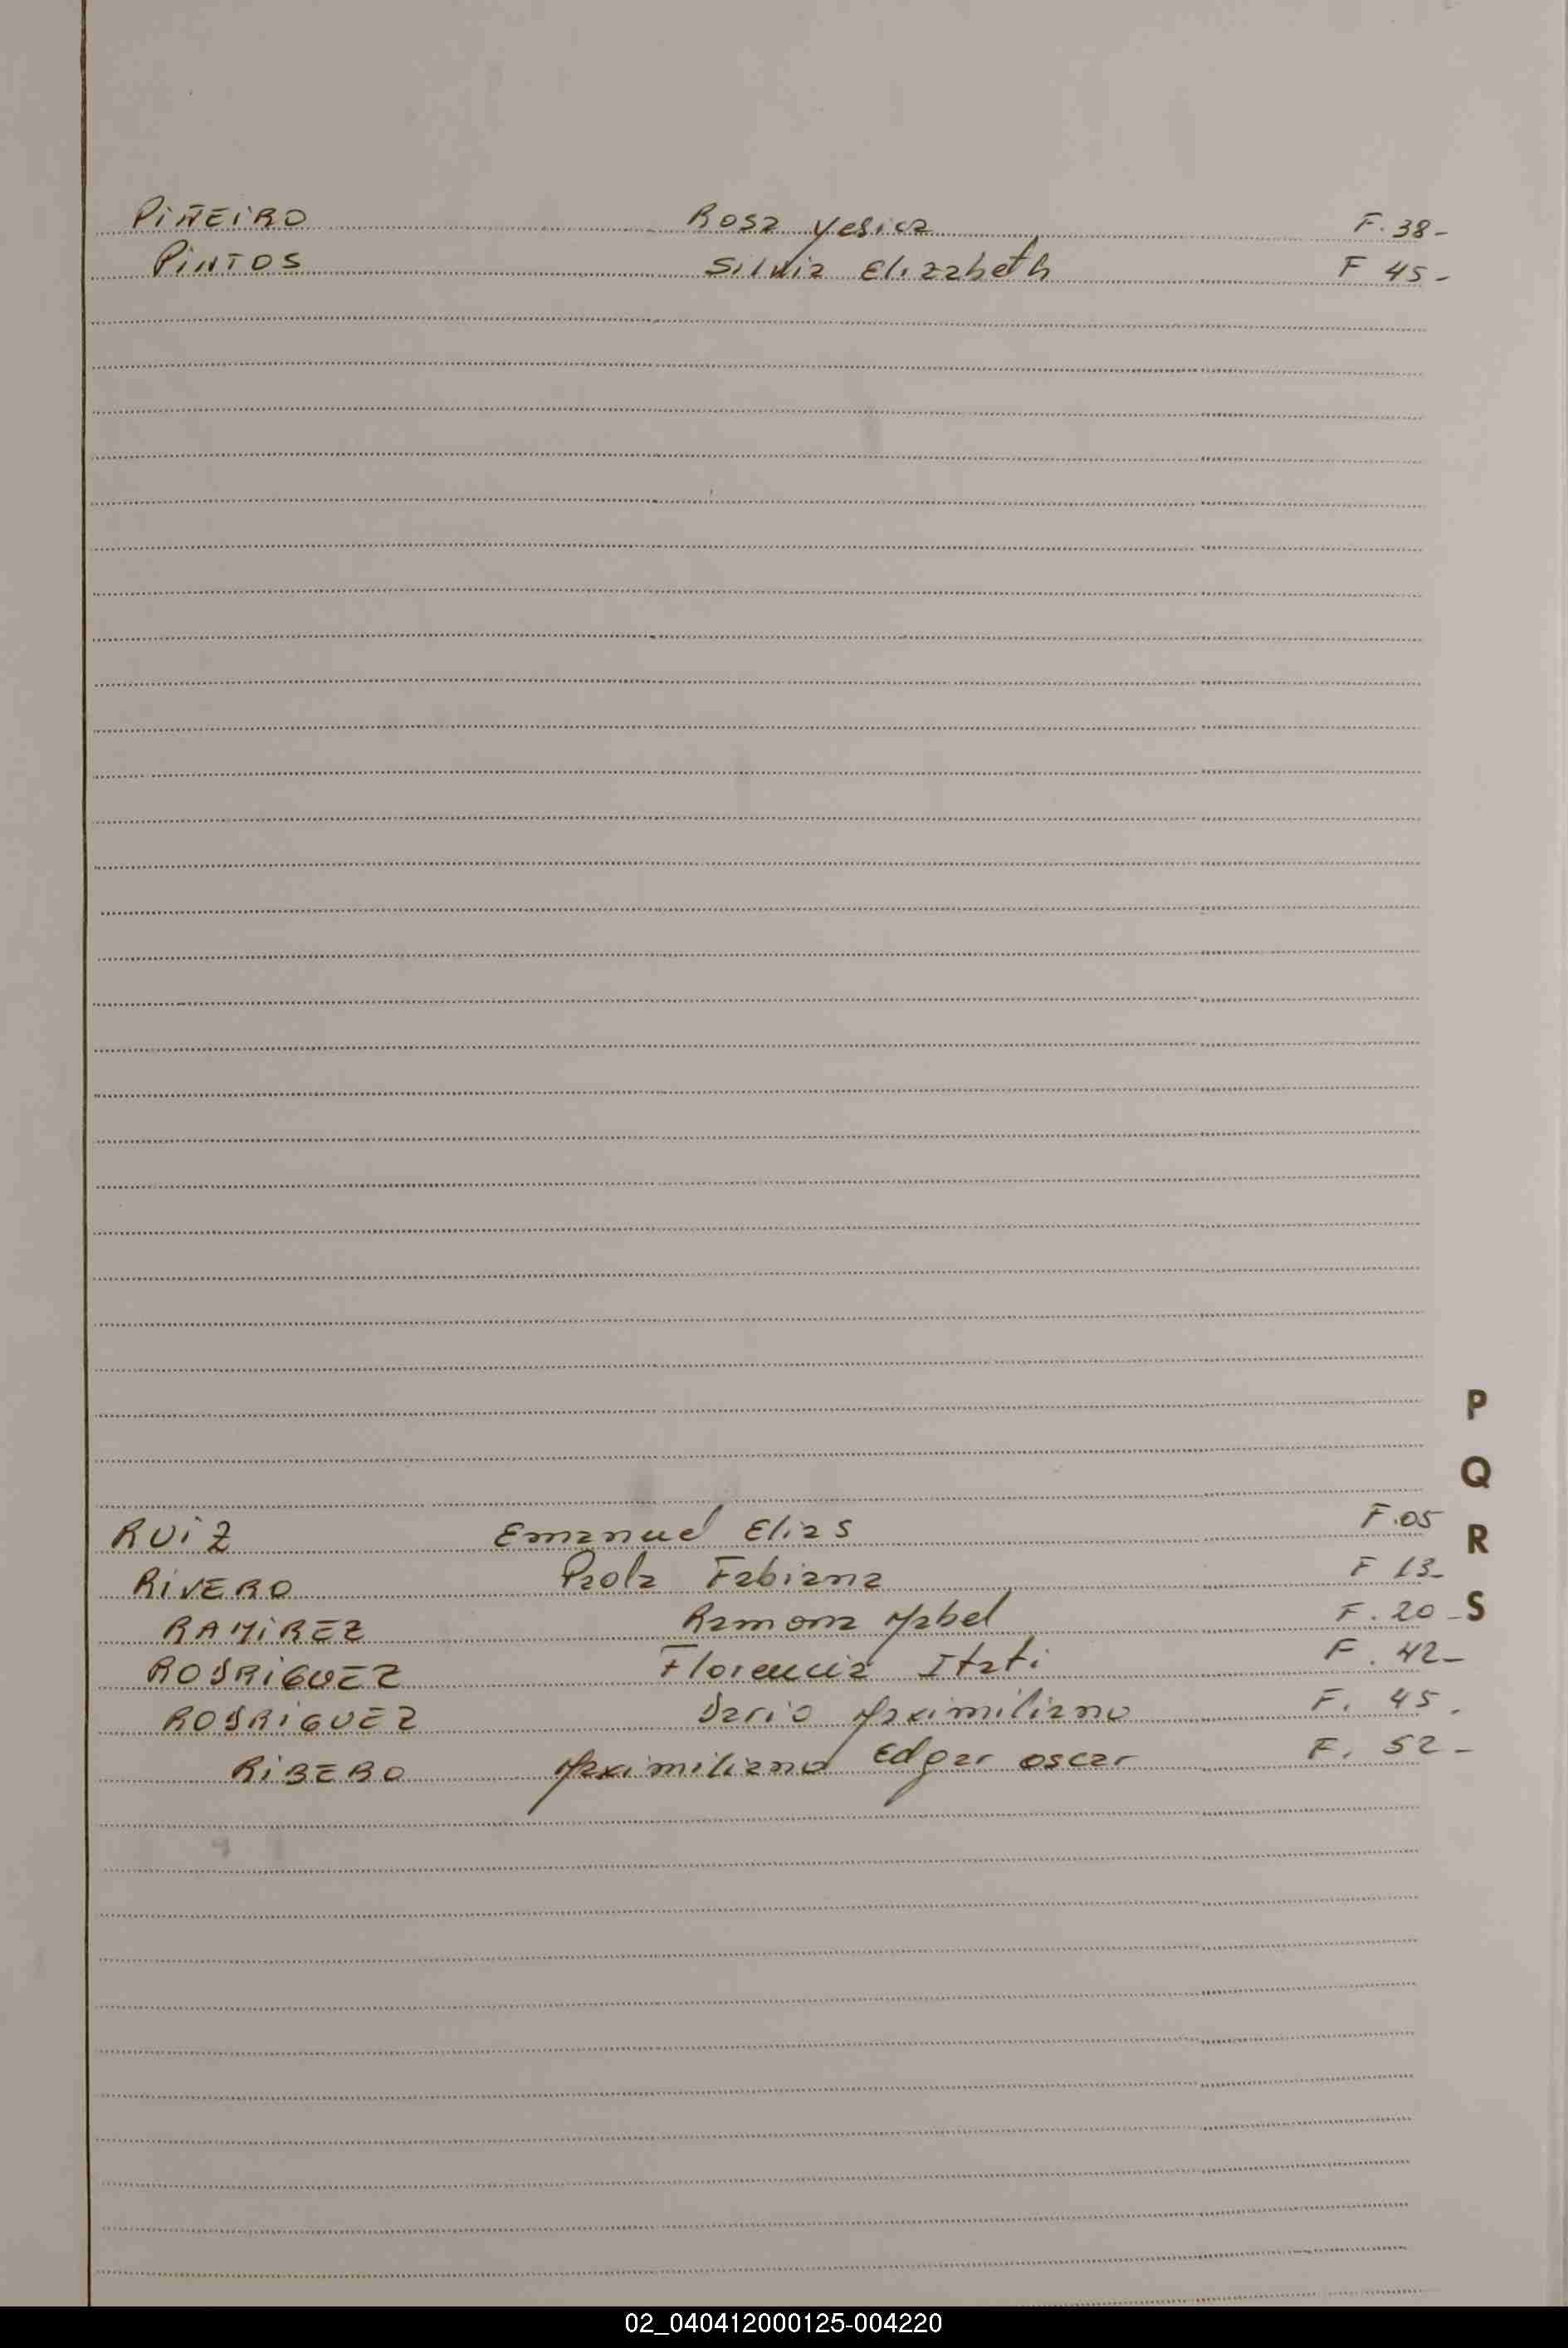 PIÑEIRO Rosa Yesica F. 38-
PINTOS Silvia Elizabeth F 45-
P
Q
RUIZ Emanuel Elias F.05
R
RIVERO Paola Fabiana F 13-
RAMIREZ Ramona Mabel F. 20-
S
RODRIGUEZ Florencia Itati F. 42-
RODRIGUEZ Dario Maximiliano F. 45.
RIBERO Maximiliano Edgar Oscar F. 52-
02_040412000125-004220